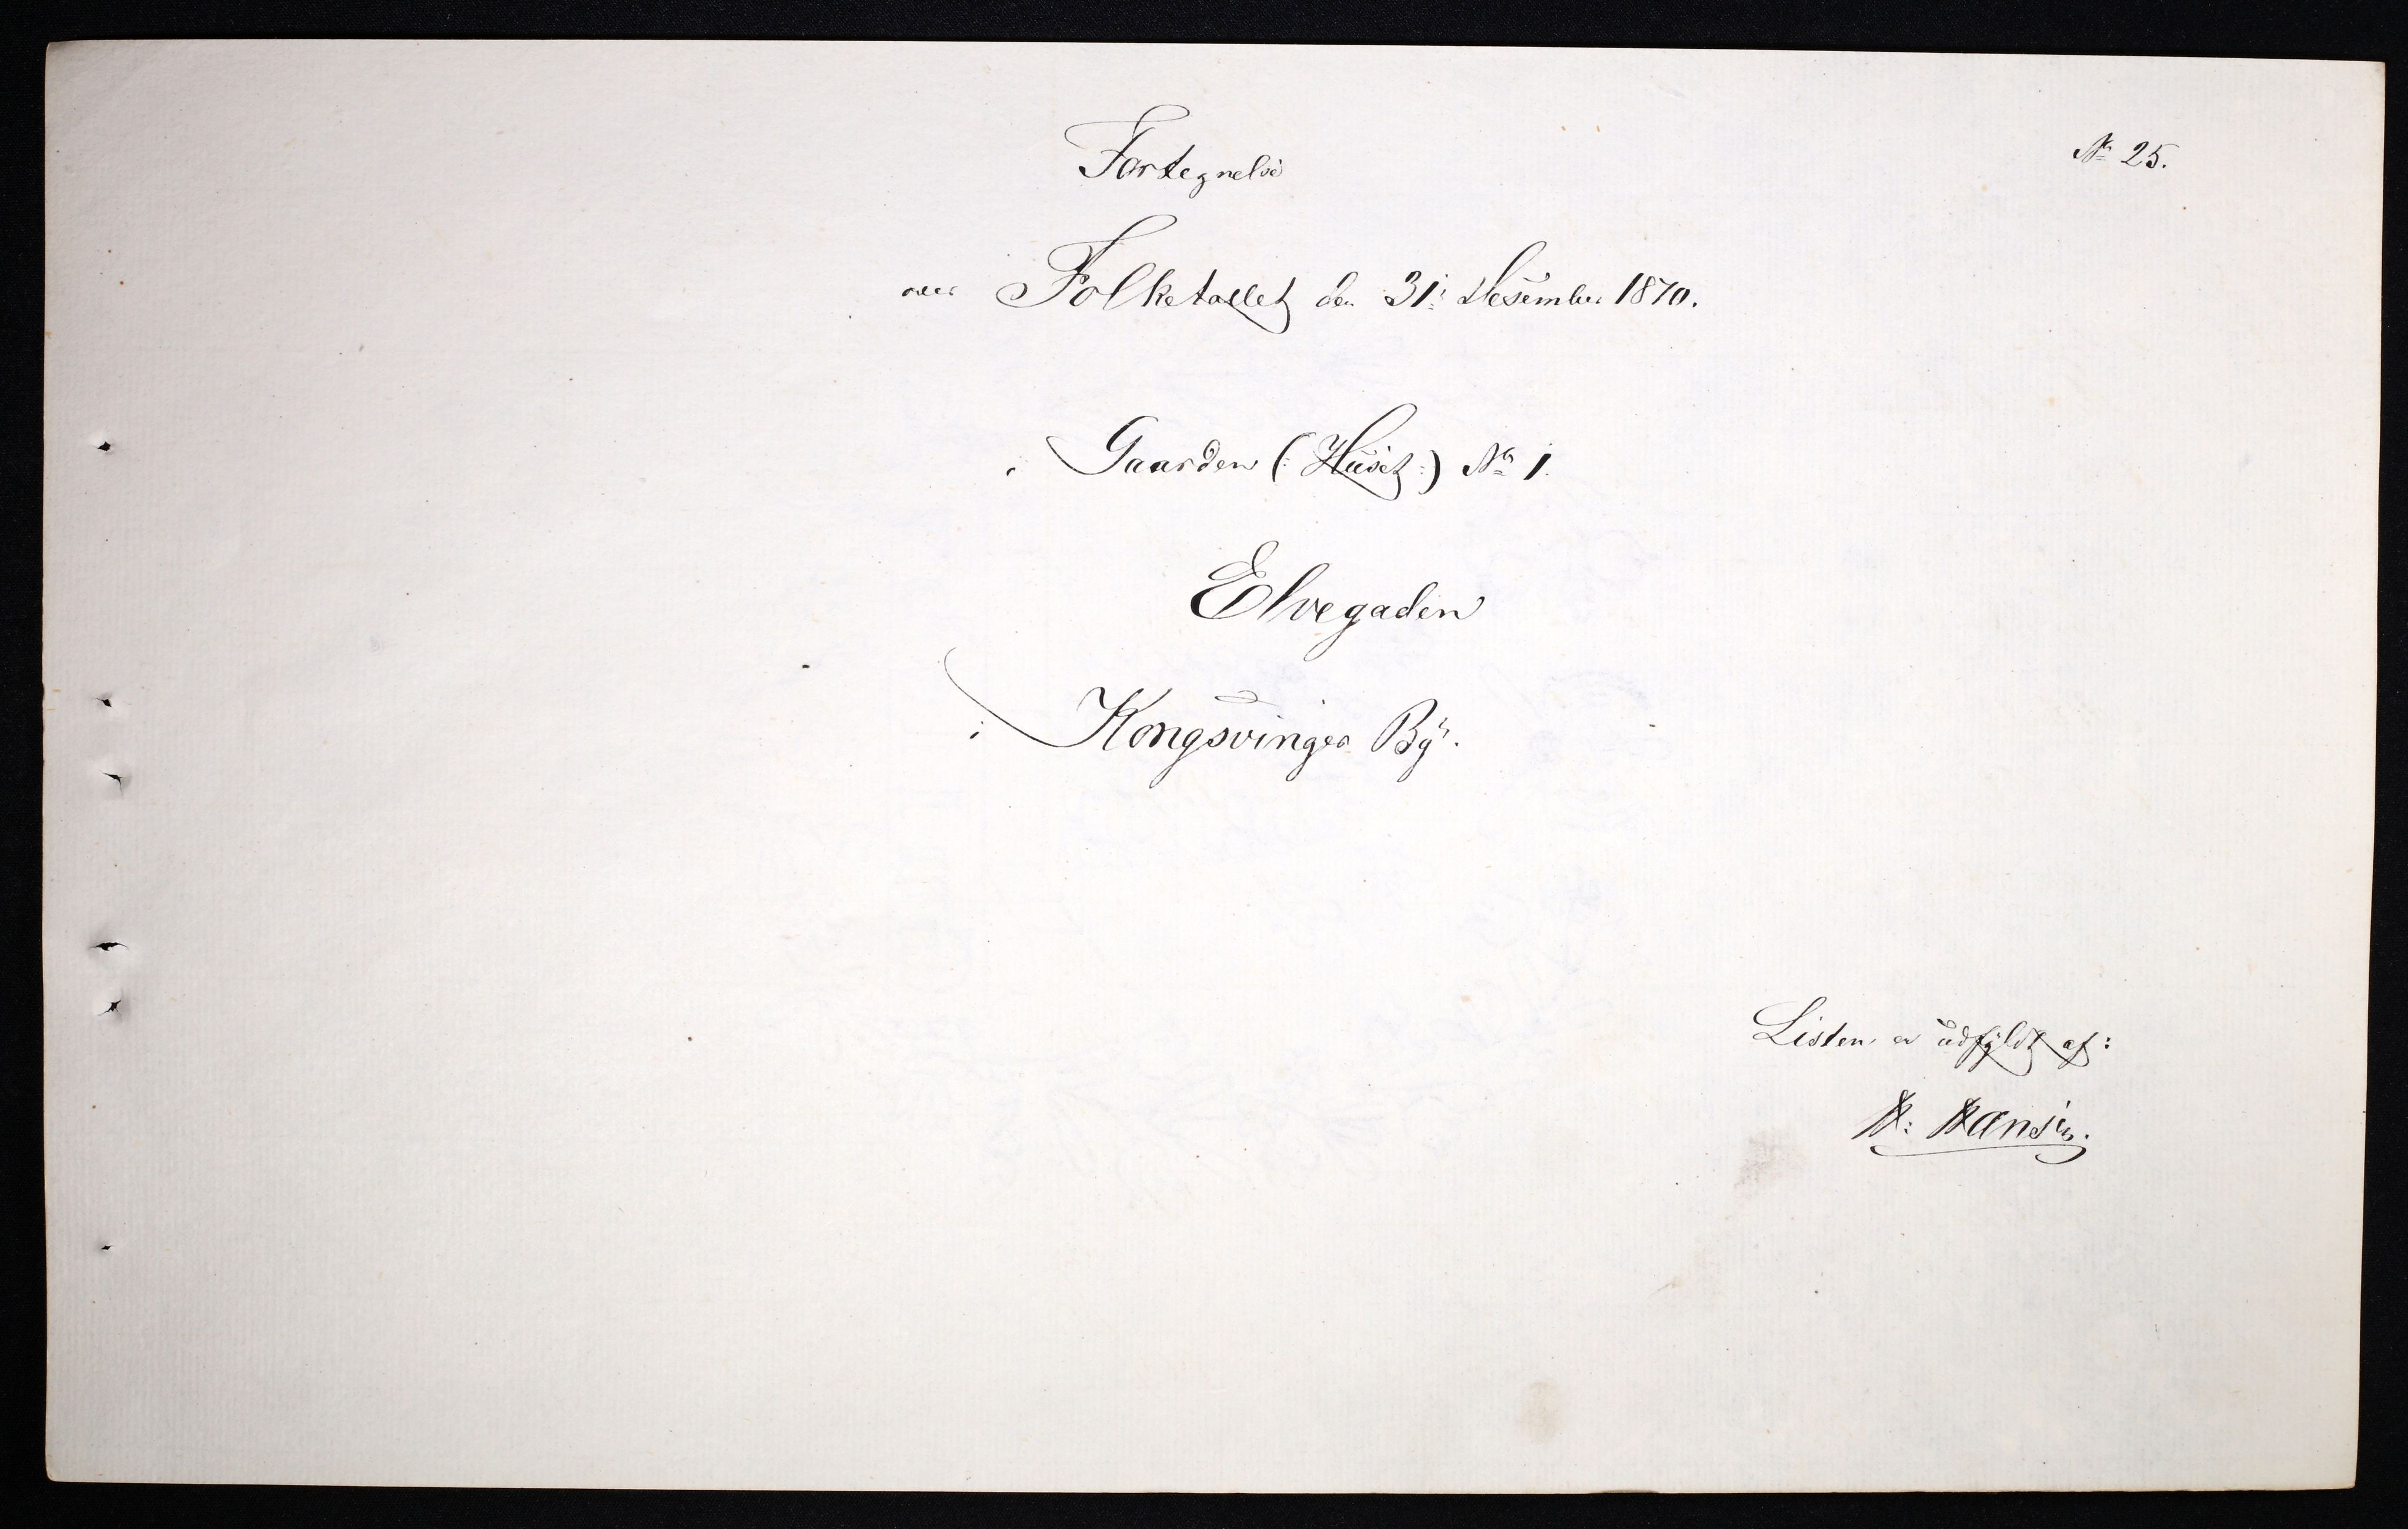 No 25.
Fortegnelse
over Folketallet den 31. Desember 1870.
i Gaarden (: Huset :) No 1.
Elvegaden
i Kongsvinger By.
Listen er udfyldt af:
H: Hansen.